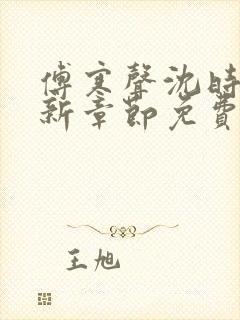 傅寒聲沈時
新章節免費
王旭